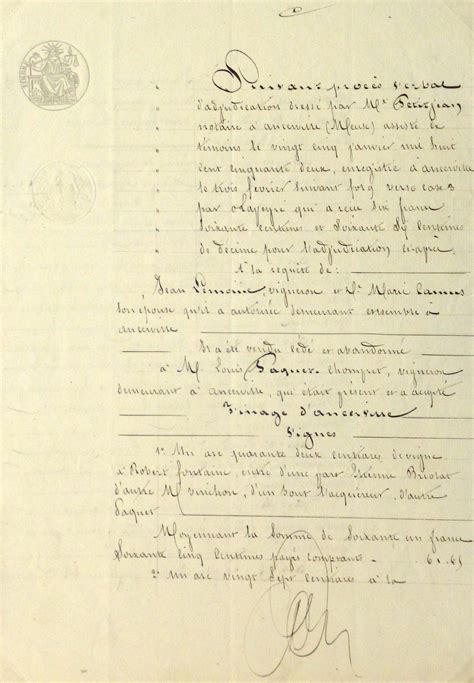 Suivant procès verbal
d'adjudication dressé par Me Petitjean
notaire à ancerville (Meuse) assisté de
témoins le vingt cinq janvier mil huit
cent cinquante deux, enregistré à ancerville
le trois février suivant fol 9 verso case 3
par qui a recu six francs
soixante centimes et soixante six centimes
de décime pour l'adjudication ci-après
A la requête de :
Jean Lemoine, vigneron et De Marie Camus
son épouse qu'il a autorisée demeurant ensemble à
ancerville
Il a été vendu cédé et abandonné
à M. Louis Paquet Chompret, vigneron
demeurant à ancerville, qui était présent et a accepté
Finage d'ancerville
Vignes
1º Un are quarante deux centiares de vigne
à Robert fontaine, entre d'une part Etienne Briolat
d'autre M vinchon, d'un bout l'acquéreur, d'autre
Paquet
Moyennant la somme de soixante un francs
soixante cinq centimes payés comptant 61.65
2º Un are vingt sept centiares à la